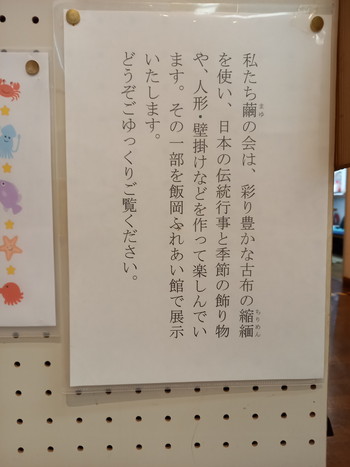 私たち繭の会は、彩り豊かな古布の縮緬
まゆ
ちりめん
を使い、日本の伝統行事と季節の飾り物
や、人形・壁掛けなどを作って楽しんでい
ます。その一部を飯岡ふれあい館で展示
いたします。
どうぞごゆっくりご覧ください。